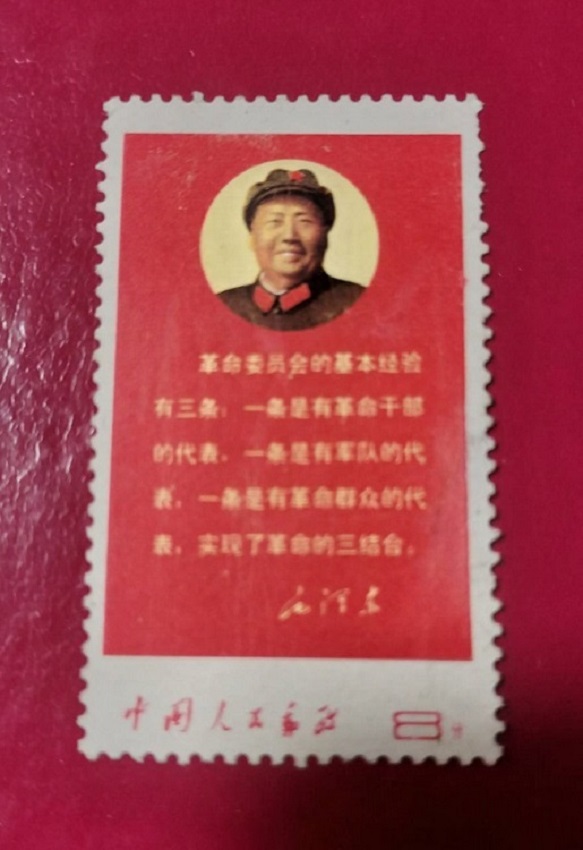 革命委员会的基本经验
有三条：一条是有革命干部
的代表，一条是有军队的代
表，一条是有革命群众的代
表，实现了革命的三结合。
毛泽东
中国人民邮政 8分